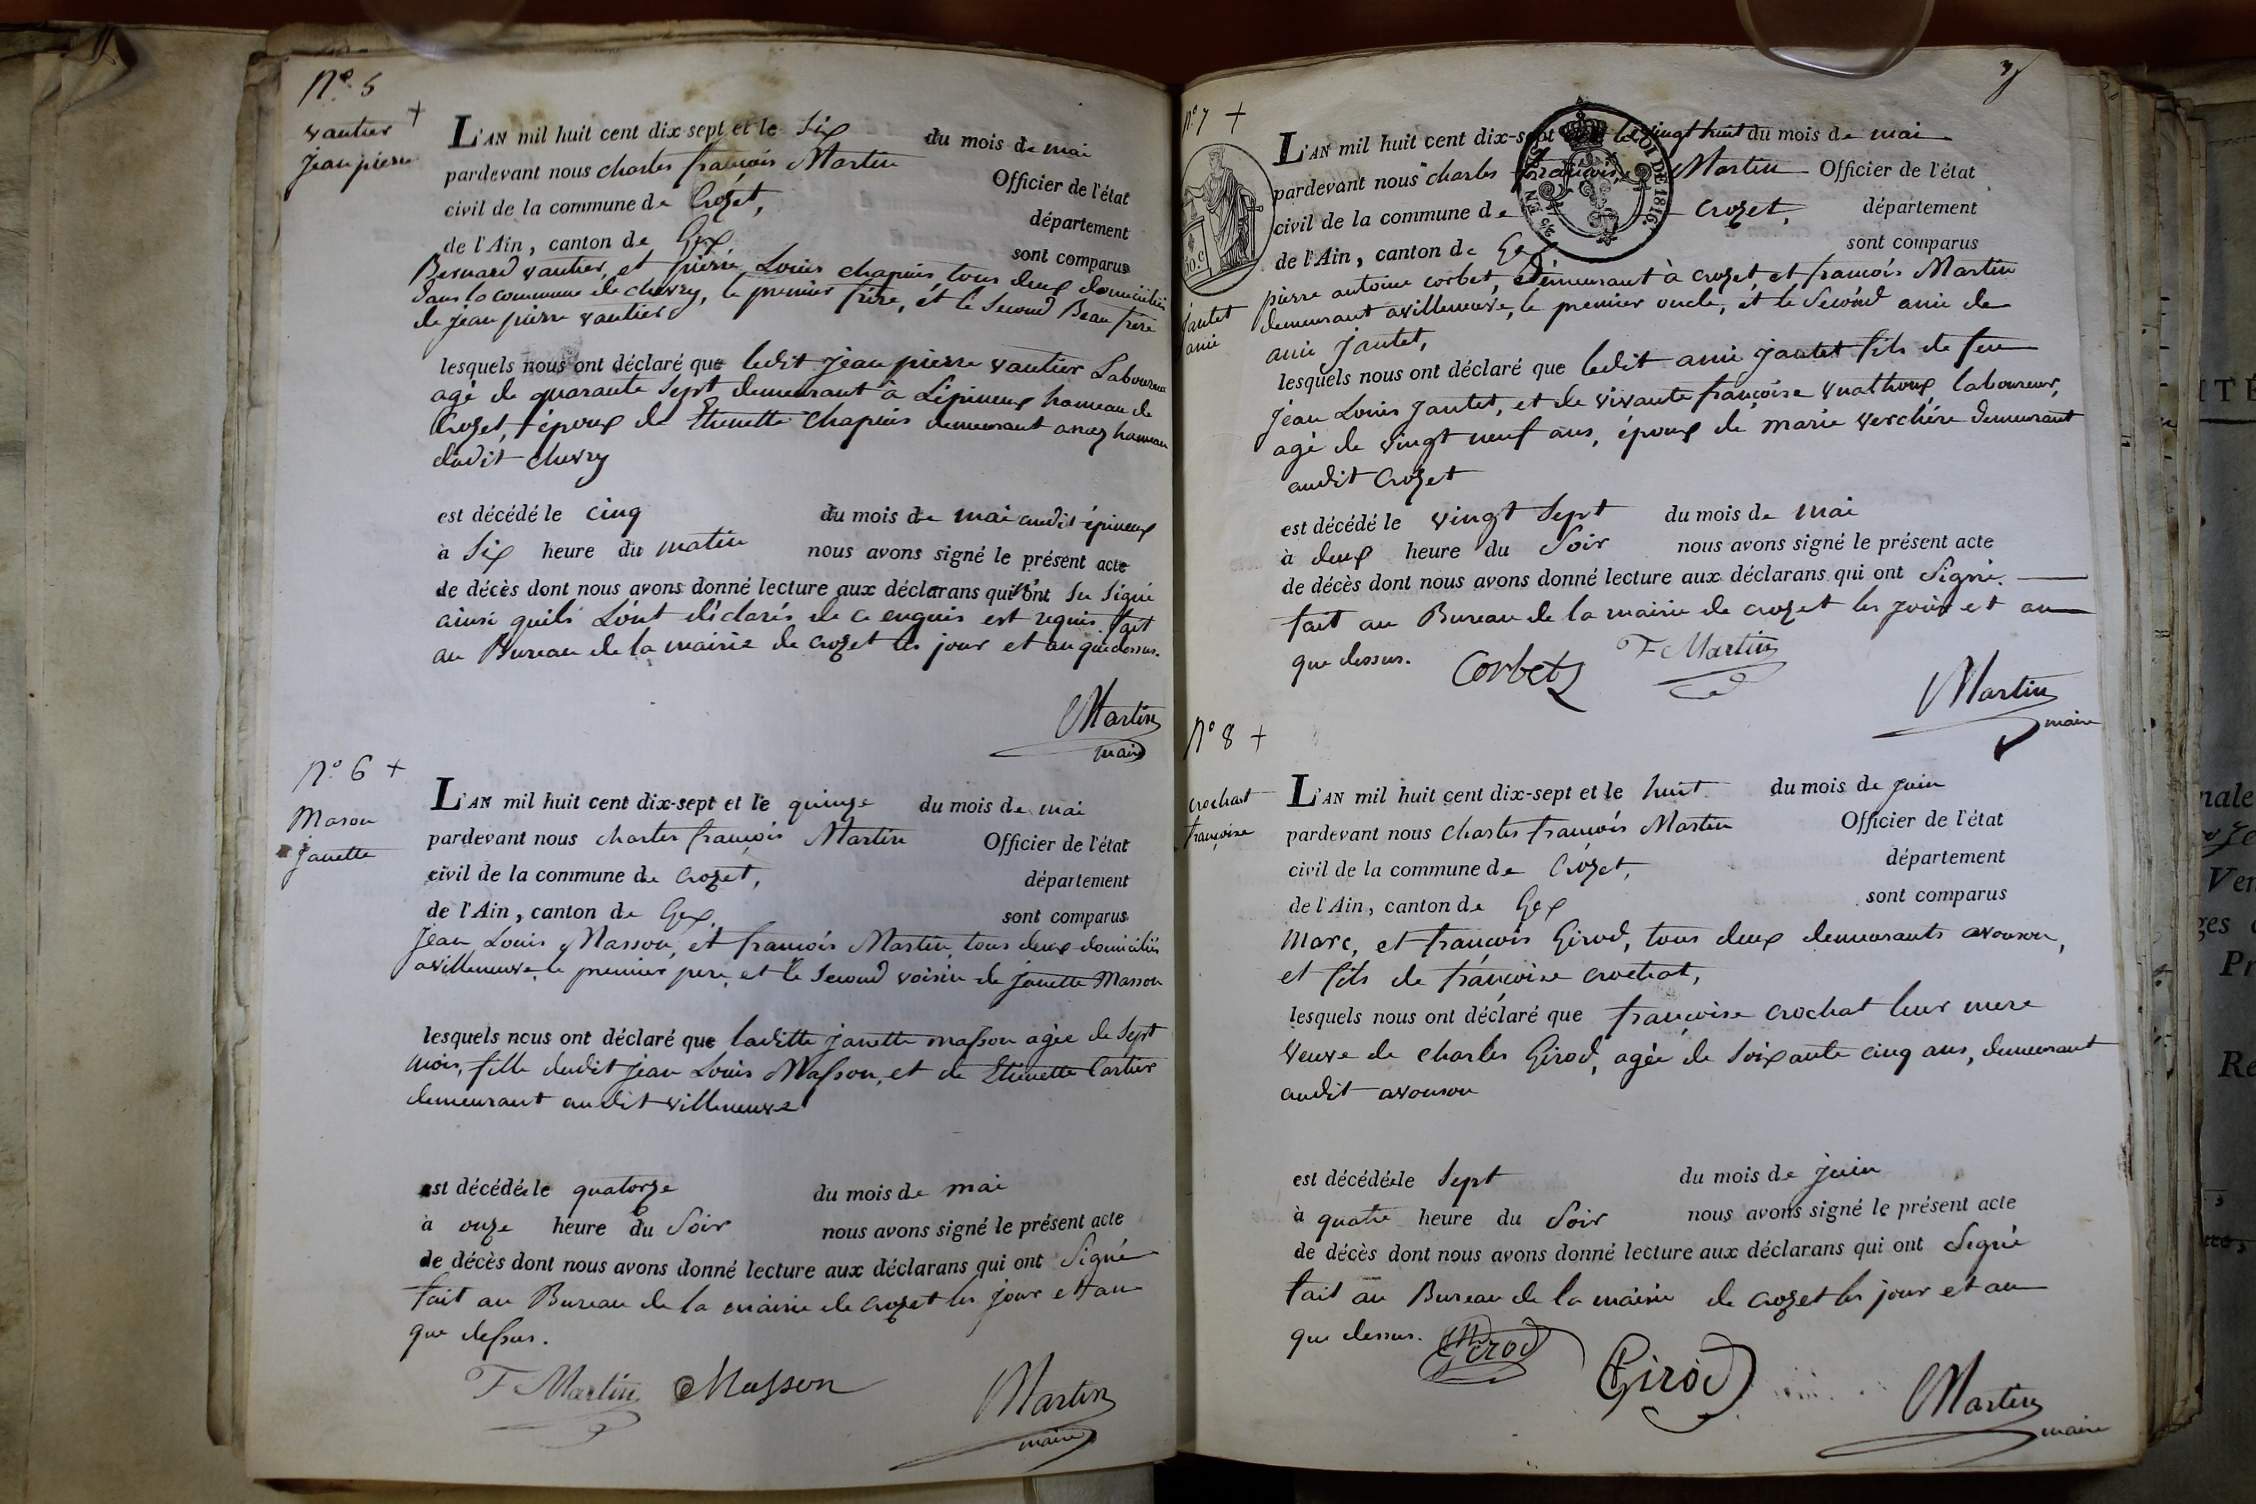 N.º 5
vautier +
jean pierre
L'AN mil huit cent dix-sept et le Six du mois de mai
pardevant nous charles françois Martin Officier de l'état
civil de la commune de Crozet, département
de l'Ain, canton de Gex sont comparus
Bernard vautier, et pierre Louis chapuis, tous deux domiciliés
dans la commune de chevry, le premier frère, et le second Beau frère
de jean pierre vautier
lesquels nous ont déclaré que ledit jean pierre vautier Laboureur
agé de quarante sept demeurant à Lépineux hameau de
Crozet, époux de Etienette Chapuis demeurant a naz hameau
dudit chevry
est décédé le cinq du mois de mai audit épineux
à Six heure du matin nous avons signé le présent acte
de décès dont nous avons donné lecture aux déclarans qui n'ont Su Signé
ainsi quils L'ont déclarés de ce enquis est requis. fait
au Bureau de la mairie de crozet les jour et an que dessus.
Martin
maire
N.º 6 +
Mason
janette
L'AN mil huit cent dix-sept et le quinze du mois de mai
pardevant nous charles françois Martin Officier de l'état
civil de la commune de crozet, département
de l'Ain, canton de Gex. sont comparus
Jean Louis Masson, et françois Martin, tous deux domiciliés
avilleneuve, le premier pere, et le Second voisin de janette Masson
lesquels nous ont déclaré que laditte janette masson agée de Sept
mois, fille dudit jean Louis Masson, et de Etienette Cartier
demeurant audit villeneuve
est décédée le quatorze du mois de mai
à onze heure du Soir nous avons signé le présent acte
de décès dont nous avons donné lecture aux déclarans qui ont Signé
fait au Bureau de la mairie de crozet les jour et an
que dessus.
F Martin Masson Martin
maire
3
N.º 7 +
50.c
jantet
ami
LOI DE 1816.
L'AN mil huit cent dix-sept le vingt huit du mois de mai
pardevant nous charles françois Martin Officier de l'état
civil de la commune de crozet, département
de l'Ain, canton de Gex sont comparus
pierre antoine corbet, demeurant à crozet, et francois Martin
demeurant avilleneuve, le premier oncle, et le Second ami de
ami jantet,
lesquels nous ont déclaré que ledit ami jantet fils de feu
jean Louis jantet, et de vivante françoise vuathoux, laboureur,
agé de vingt neuf ans, époux de marie verchère demeurant
audit Crozet
est décédé le vingt Sept du mois de mai
à deux heure du Soir nous avons signé le présent acte
de décès dont nous avons donné lecture aux déclarans qui ont Signé.
fait au Bureau de la mairie de crozet les jour et an
que dessus. Corbet F Martin
Martin
maire
N.º 8 +
crochat
françoise
L'AN mil huit cent dix-sept et le huit du mois de juin
pardevant nous charles françois Martin Officier de l'état
civil de la commune de Crozet, département
de l'Ain, canton de Gex sont comparus
Marc, et françois Girod, tous deux demeurants avouson,
et fils de françoise crochat,
lesquels nous ont déclaré que françoise crochat leur mere
veuve de charles Girod, agée de Soixante cinq ans, demeurant
audit avouson
est décédée le Sept du mois de juin
à quatre heure du Soir nous avons signé le présent acte
de décès dont nous avons donné lecture aux déclarans qui ont Signé
fait au Bureau de la mairie de crozet les jour et an
que dessus. Girod Girod
Martin
maire